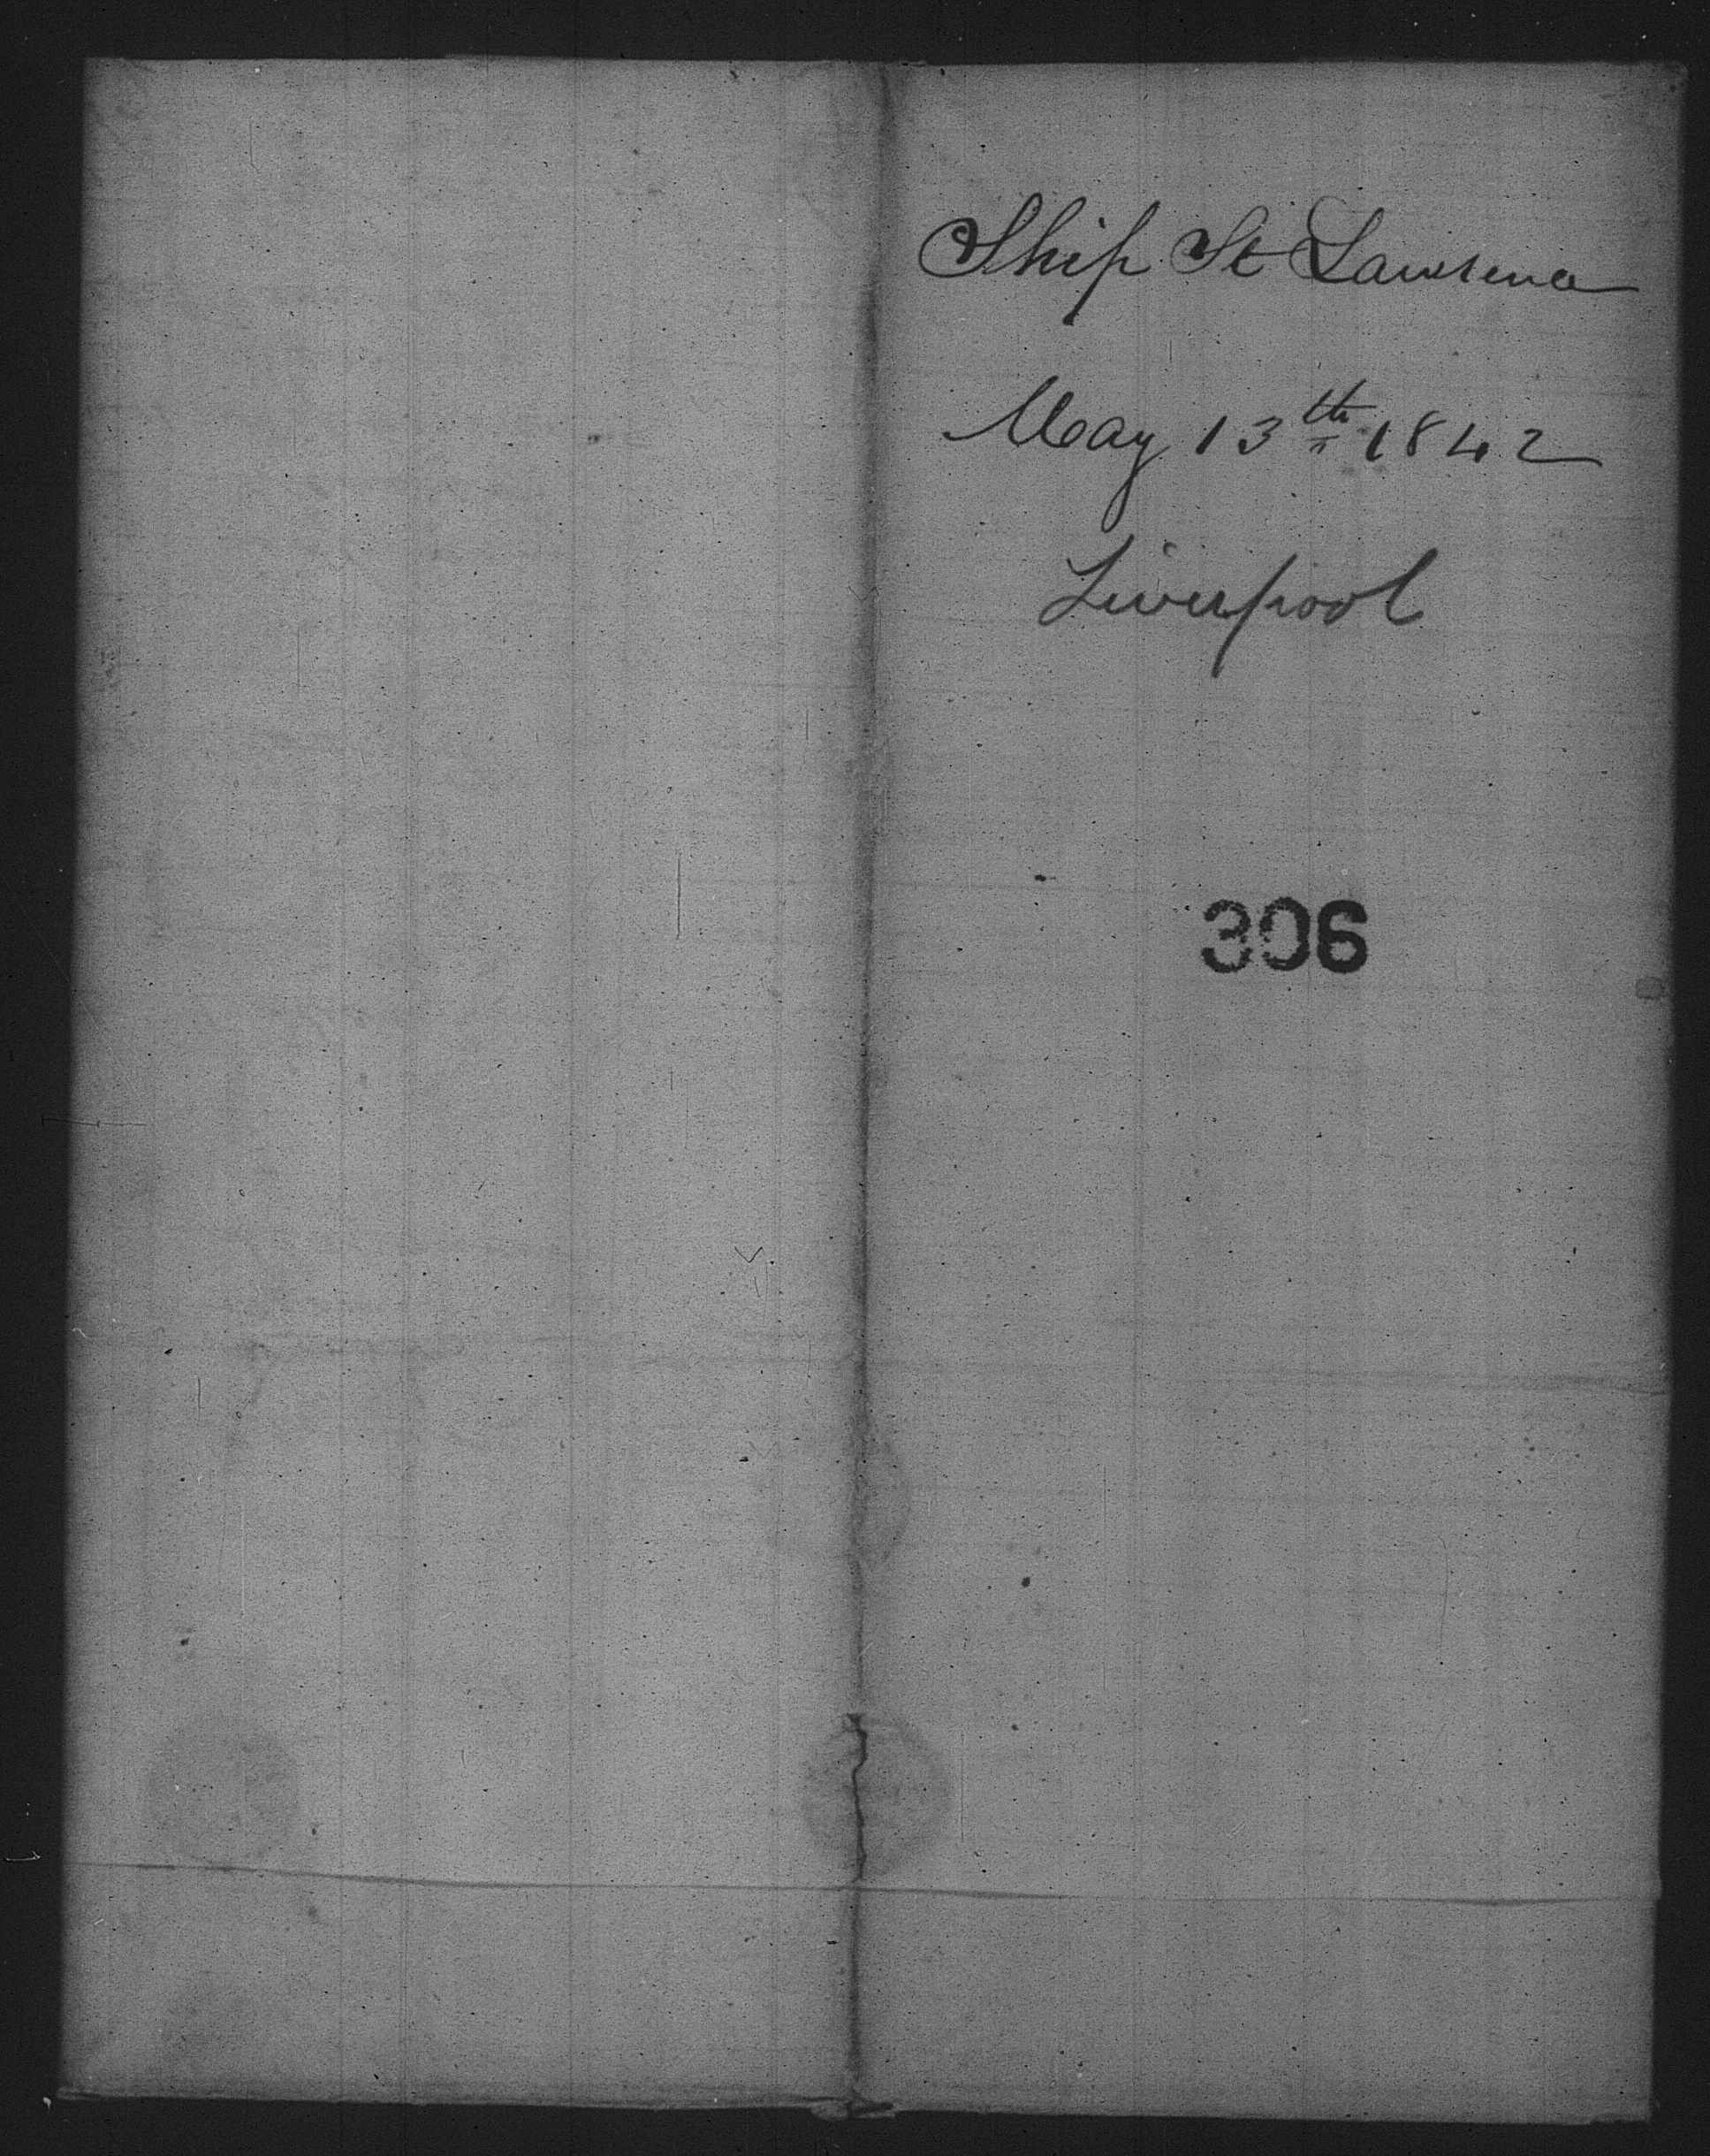 Ship St Lawrence
May 13th 1842
Liverpool
306